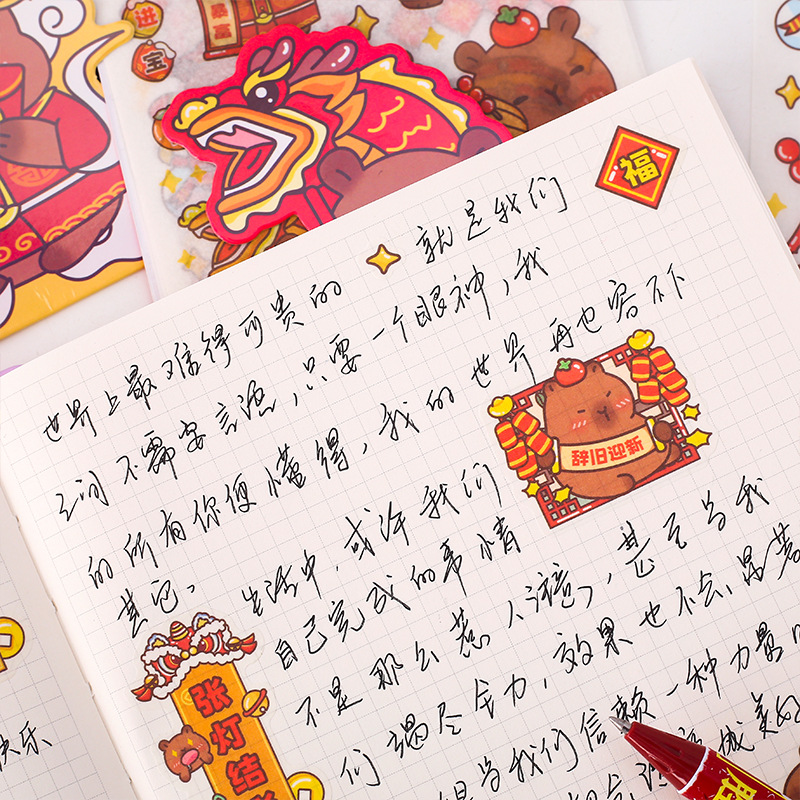 进
宝
暴富
福
世界上最难得可贵的 就是我们
之间不需要言语,只要一个眼神,我
的所有你便懂得,我的世界再也容不下
其它。 生活中,或许我们
自己完成的事情
辞旧迎新
不是那么惹人注意,甚至当我
们竭尽全力,效果也不会显著
当我们信赖一种力量
美好
张灯结
快乐